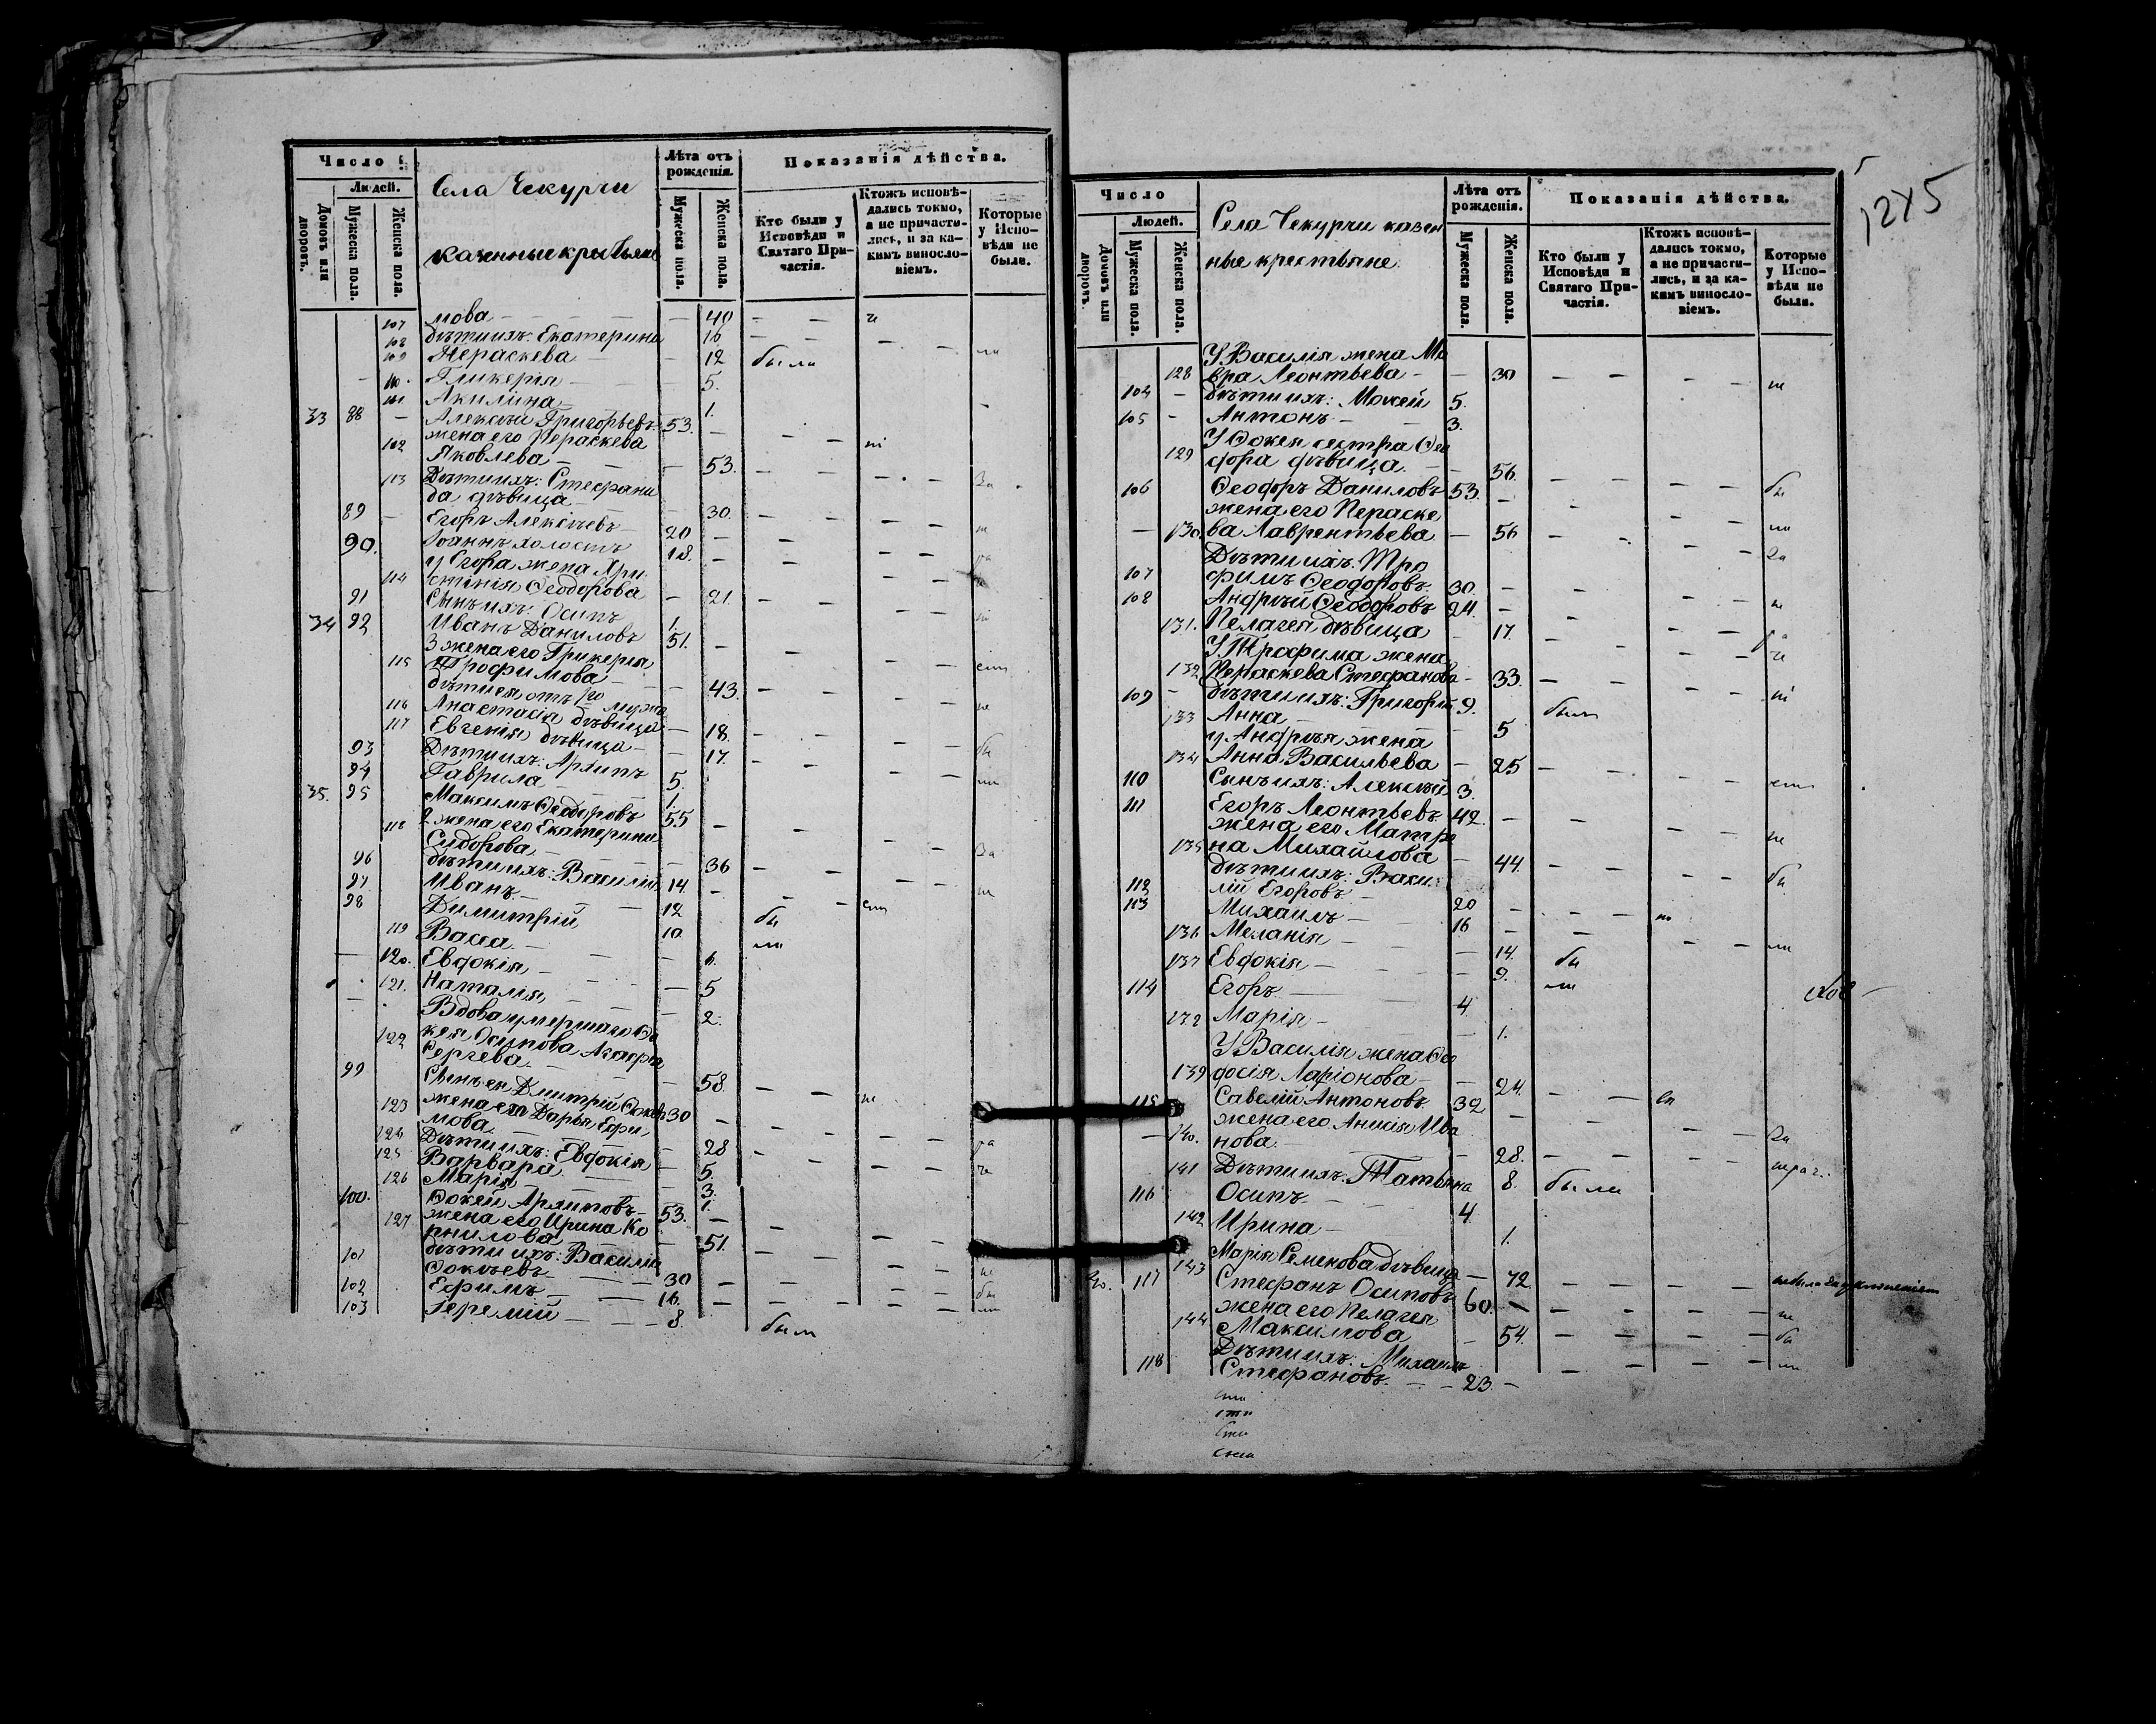 Число
Людей.
Домовъ или дворовъ.
Мужеска пола.
Женска пола.
Села Чекурчи
казенные крестьяне
Лѣта отъ рожденія.
Мужеска пола.
Женска пола.
Показанія дѣйства.
Кто были у Исповѣди и Святаго Причастія.
Ктожъ исповѣдались токмо, а не причастились, и за какимъ винословіемъ.
Которые у Исповѣди не были.
107 мова — — 40 — —
108 дѣти ихъ: Екатерина — 16 — —
109 Пераскева — 12 были
110. Гликерія — 5.
111 Акилина — 1.
33 88 — Алексѣй Григорьевъ 53. —
жена его Пераскева
112 Яковлева — 53. —
113 Дѣти ихъ: Стефани
да дѣвица — 30. —
89 — Егоръ Алексѣевъ 20 —
90. Іоаннъ холостъ 18. —
у Егора жена Хри
114 стинія Ѳеодорова — 21. —
91 Сынъ ихъ: Осипъ 1.
34 92 Иванъ Даниловъ 51. —
3 жена его Гликерія
115 Трофимова — 43. —
дѣти ея отъ 1го мужа
116 Анастасія дѣвица — 18. —
117 Евгенія дѣвица — 17. —
93 Дѣти ихъ: Архипъ 5.
94 Гаврила 1.
35. 95 Максимъ Ѳеодоровъ 55 —
2 жена его Екатерина
118 Сидорова — 36 —
96 дѣти ихъ: Василій 14 —
97 Иванъ — 12 бы
98 Димитрій 10 ли
119 Васса — 6.
120. Евдокія — 5
121. Наталія — 2.
Вдова умершаго Ѳо
кея Осипова Агафья
122 Сергѣева — 58. —
99 Сынъ ея Дмитрій Ѳокеевъ 30 —
жена его Дарья Ефи
123 мова — 28 —
124 Дѣти ихъ: Евдокія — 5.
125 Варвара — 3.
126 Марія — 1.
100. Ѳокей Архиповъ 53. —
жена его Ирина Ко
127 рнилова — 51. —
дѣти ихъ: Василій
101 Ѳокѣевъ — 30 —
102 Ефимъ — 16. —
103 Іеремій — 8. были
1275
Число
Людей.
Домовъ или дворовъ.
Мужеска пола.
Женска пола.
Села Чекурчи казен
ные крестьяне.
Лѣта отъ рожденія.
Мужеска пола.
Женска пола.
Показанія дѣйства.
Кто были у Исповѣди и Святаго Причастія.
Ктожъ исповѣдались токмо, а не причастились, и за какимъ винословіемъ.
Которые у Исповѣди не были.
У Василія жена Ма
128 вра Леонтьева — 30 — —
104 — дѣти ихъ: Мокей 5.
105 — Антонъ — 3.
У Ѳокея сестра Ѳео
129 дора дѣвица — 56. —
106 Ѳеодоръ Даниловъ 53. —
жена его Пераске
130. ва Лаврентьева — 56 —
Дѣти ихъ: Тро
107 фимъ Ѳеодоровъ 30. —
108 Андрѣй Ѳеодоровъ 24. —
131. Пелагея дѣвица — 17. —
У Трофима жена
132 Пераскева Стефанова — 33. —
109 — дѣти ихъ: Григорій 9. были
133 Анна — 5
у Андрѣя жена
134 Анна Васильева — 25 —
110 Сынъ ихъ: Алексѣй 3.
111 Егоръ Леонтьевъ 42. —
жена его Матре
135 на Михайлова — 44. —
дѣти ихъ: Васи
112 лій Егоровъ — 20 —
113 Михаилъ — 16 —
136 Меланія — 14. бы
137 Евдокія — 9. ли
114 Егоръ — 4.
Марія — 1.
У Василія жена Ѳео
139 досія Ларіонова — 24. —
115 Савелій Антоновъ 32 —
жена его Анисія Ива
140. нова — 28. —
141 Дѣти ихъ: Татьяна 8. были
116 Осипъ — 4.
142 Ирина — 1.
143 Марія Семенова дѣвица — 72. —
40. 117 Стефанъ Осиповъ 60. —
жена его Пелагея
144 Максимова — 54. —
Дѣти ихъ: Михаилъ
118 Стефановъ — 23. —